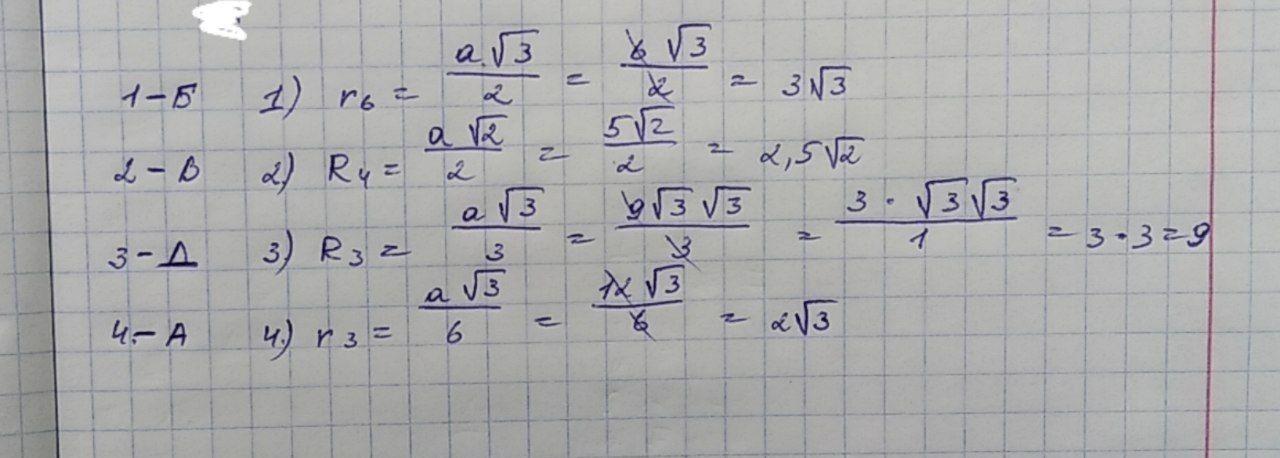 1-Б 1) r₆ = a√3/2 = 6√3/2 = 3√3
2-В 2) R₄ = a√2/2 = 5√2/2 = 2,5√2
3-Д 3) R₃ = a√3/3 = 9√3√3/3 = 3·√3√3/1 = 3·3=9
4.-А 4.) r₃ = a√3/6 = 12√3/6 = 2√3